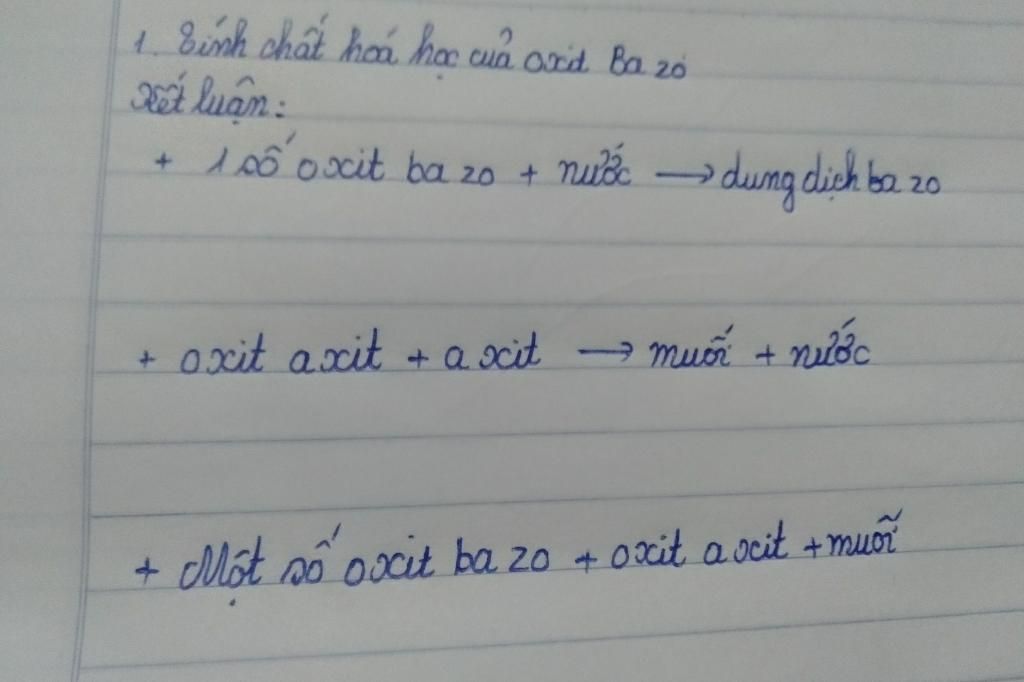 1. Tính chất hoá học của oxit Ba zơ
Kết luận:
+ 1 số oxit ba zơ + nước → dung dịch ba zơ
+ oxit axit + axit → muối + nước
+ Một số oxit ba zơ + oxit axit + muối